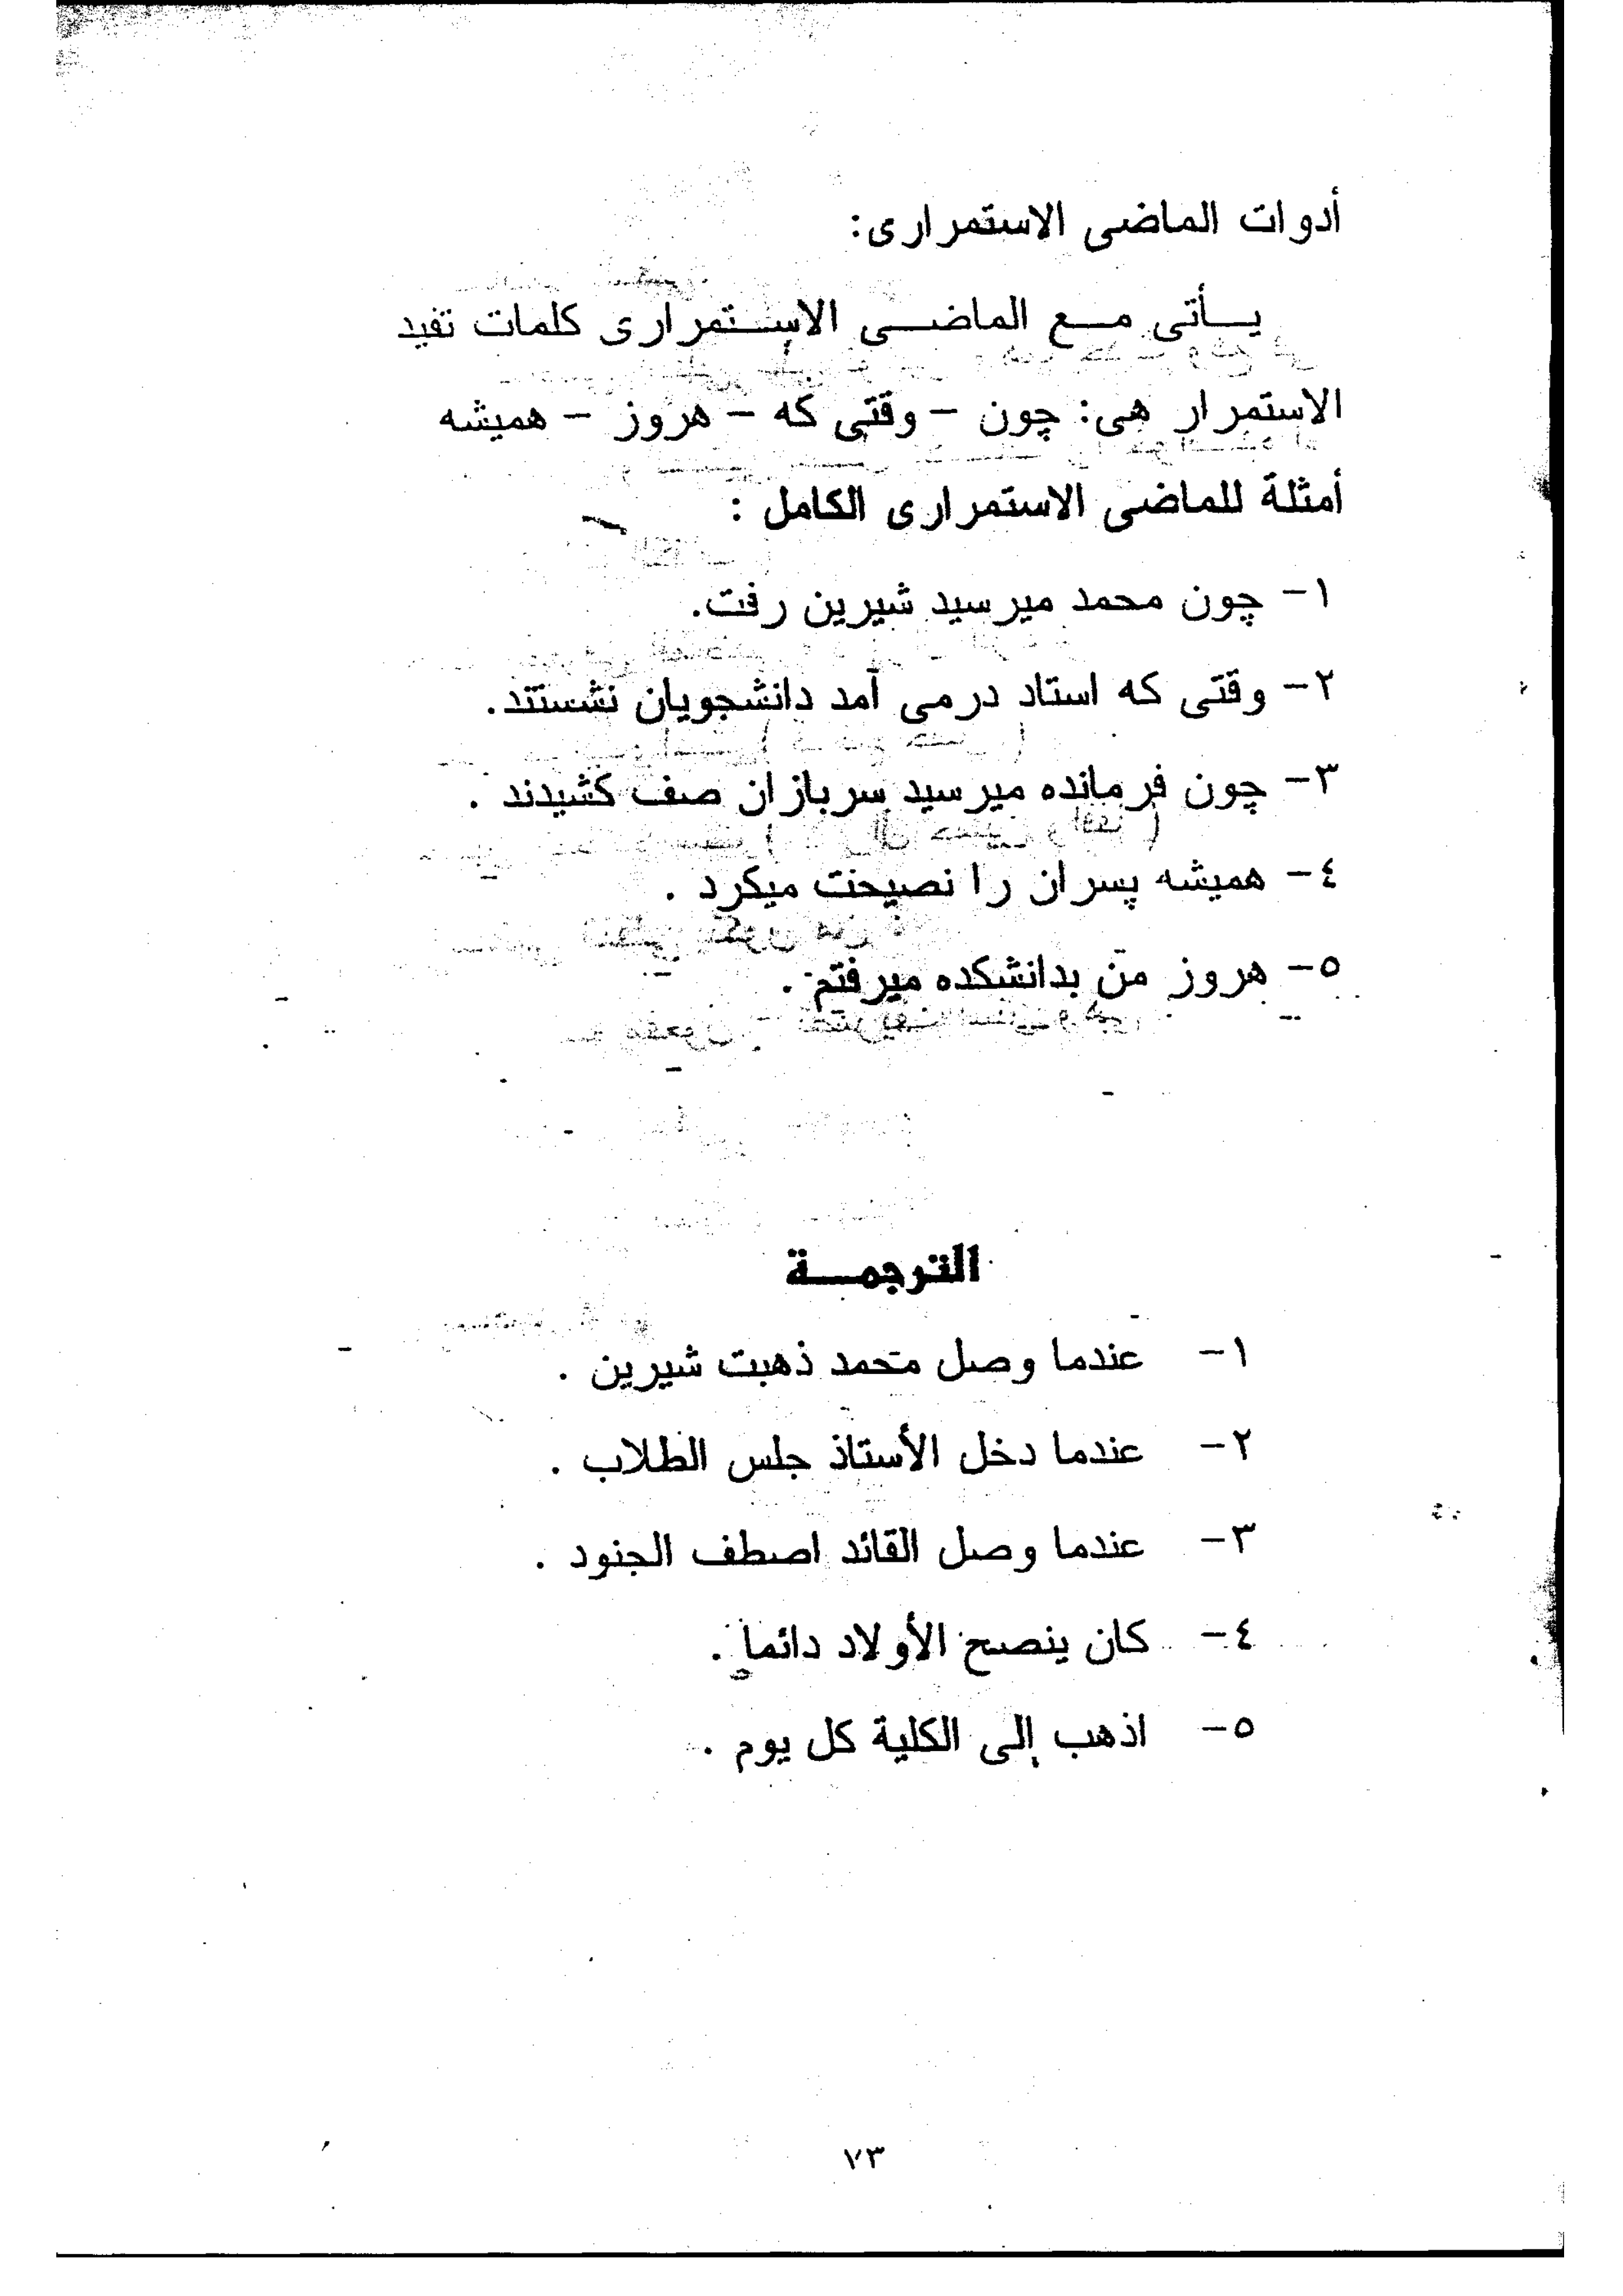 أدوات الماضى الاستمرارى:
يأتى مع الماضى الاستمرارى كلمات تفيد
الاستمرار هى: چون - وقتى كه - هروز - هميشه
أمثلة للماضى الاستمرارى الكامل :
١- چون محمد ميرسيد شيرين رفت.
٢- وقتى كه استاد درمى آمد دانشجويان نشستند.
٣- چون فرمانده ميرسيد سربازان صف كشيدند .
٤- هميشه پسران را نصيحت ميكرد .
٥- هروز من بدانشكده ميرفتم .
الترجمة
١- عندما وصل محمد ذهبت شيرين .
٢- عندما دخل الأستاذ جلس الطلاب .
٣- عندما وصل القائد اصطف الجنود .
٤- كان ينصح الأولاد دائما .
٥- اذهب إلى الكلية كل يوم .
٧٣